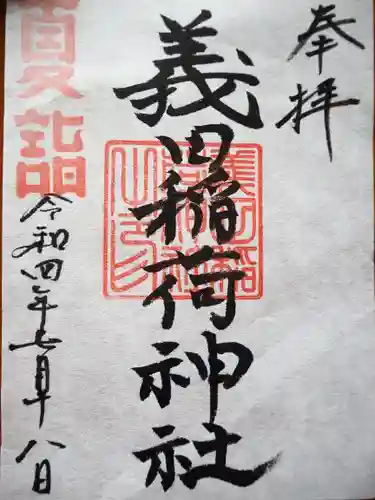 奉拝
義田稲荷神社
夏詣
令和四年七月十八日